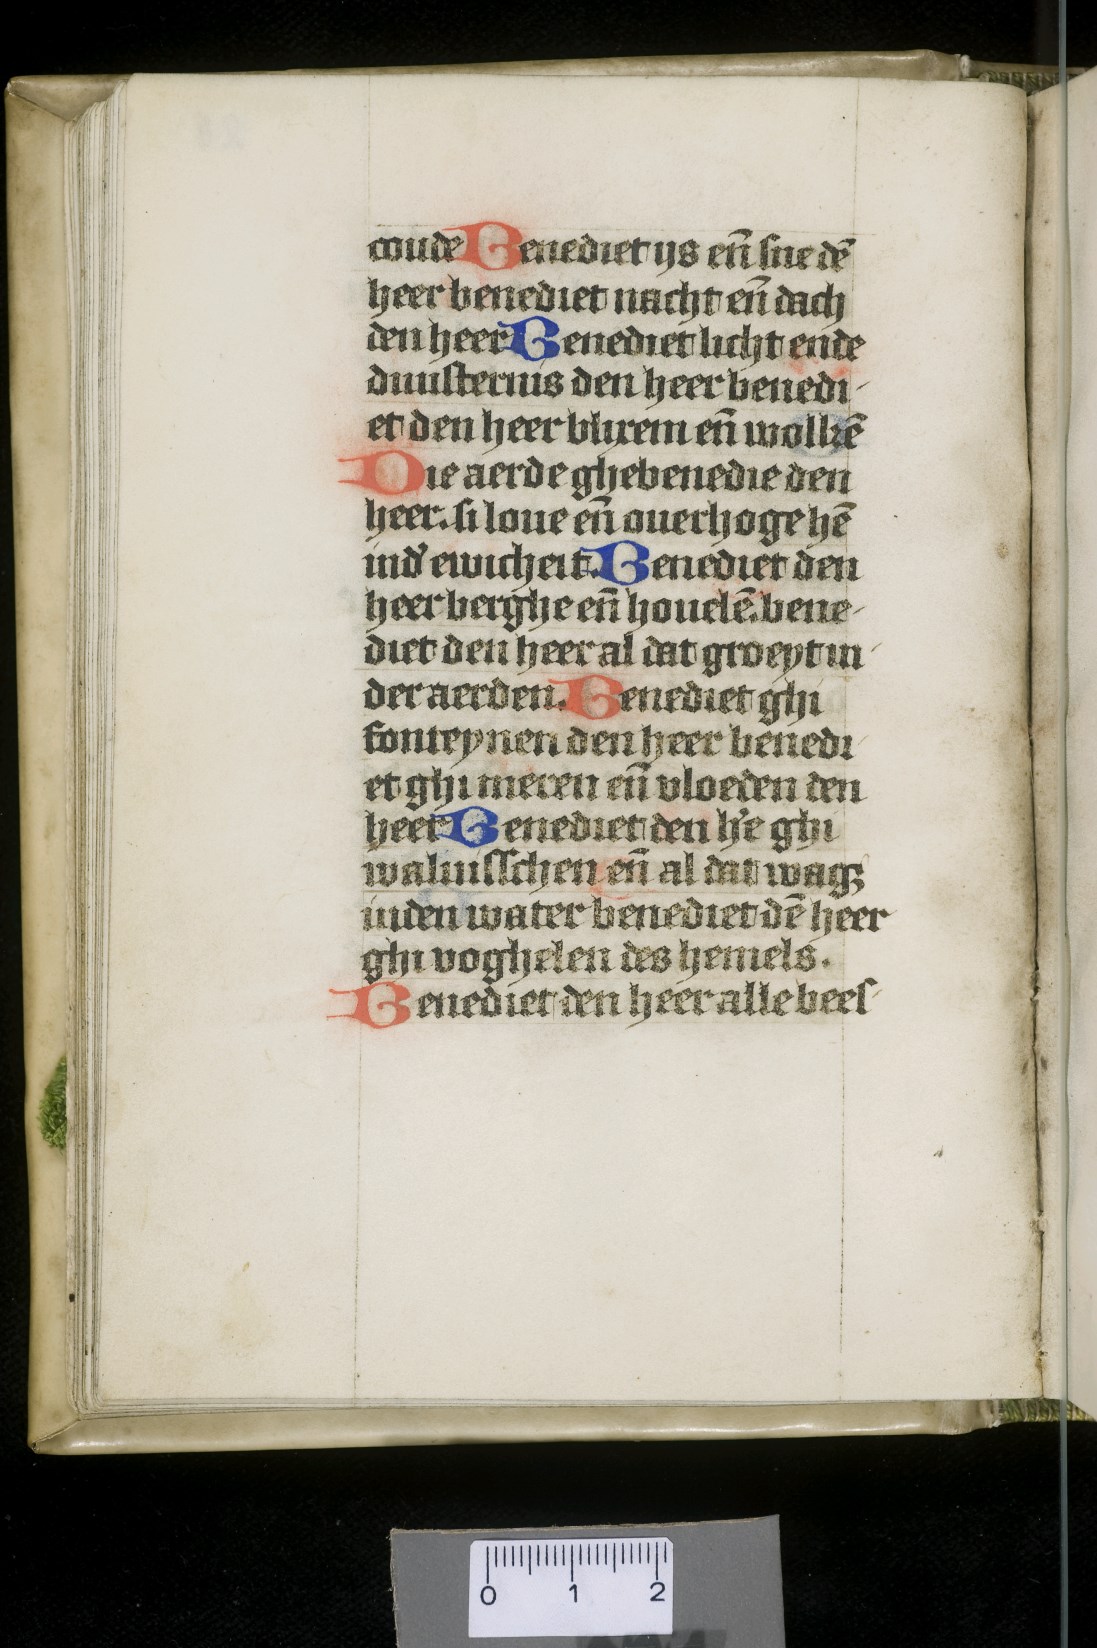 coude Benediet ijs en̄ sne dē
heer benediet nacht en̄ dach
den heer Benediet licht ende
duusternis den heer benedi-
et den heer blixem en̄ wolkē
Die aerde ghebenedie den
heer. si loue en̄ ouerhoge hē
ind' ewicheit. Benediet den
heer berghe en̄ houelē. bene-
diet den heer al dat groeyt in
der aerden. Benediet ghi
fonteynen den heer benedi
et ghi meren en̄ vloeden den
heer Benediet den h'e ghi
waluisschen en̄ al dat wagꝫ
inden water benediet dē heer
ghi voghelen des hemels.
Benediet den heer alle bees-
0 1 2